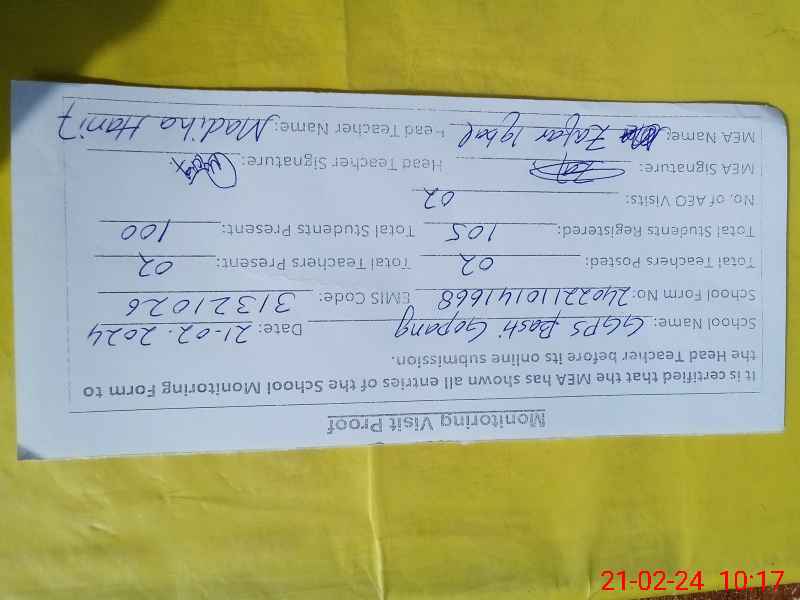 Monitoring Visit Proof
It is certified that the MEA has shown all entries of the School Monitoring Form to
the Head Teacher before its online submission.
School Name: GGPS Basti Gopang Date: 21-02-2024
School Form No: 2402211014 1668 EMIS Code: 31321026
Total Teachers Posted: 02 Total Teachers Present: 02
Total Students Registered: 105 Total Students Present: 100
No. of AEO Visits: 02
MEA Signature: Head Teacher Signature:
MEA Name: Zafar Iqbal Head Teacher Name: Madiha Hanif
21-02-24 10:17